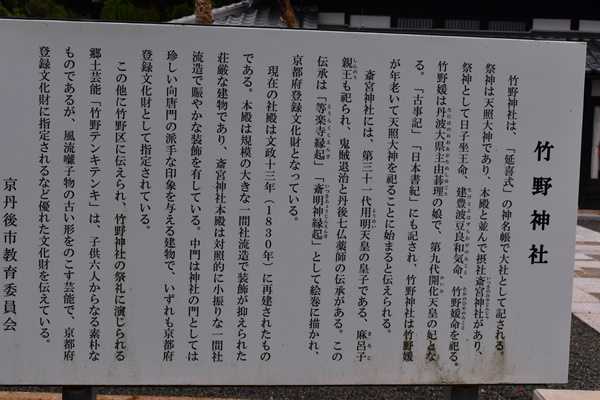 竹野神社
竹野神社は、「延喜式」の神名帳で大社として記される。
祭神は天照大神であり、本殿と並んで摂社斎宮神社があり、
祭神として日子坐王命、建豊波豆良和気命、竹野媛命を祀る。
竹野媛は丹波大県主由碁理の娘で、第九代開化天皇の妃とな
る。「古事記」「日本書紀」にも記され、竹野神社は竹野媛
が年老いて天照大神を祀ることに始まると伝えられる。
斎宮神社には、第三十一代用明天皇の皇子である、麻呂子
親王も祀られ、鬼賊退治と丹後七仏薬師の伝承がある。この
伝承は「等楽寺縁起」「斎明神縁起」として絵巻に描かれ、
京都府登録文化財となっている。
現在の社殿は文政十三年(1830年)に再建されたもの
である。本殿は規模の大きな一間社流造で装飾が抑えられた
荘厳な建物であり、斎宮神社本殿は対照的に小振りな一間社
流造で賑やかな装飾を有している。中門は神社の門としては
珍しい向唐門の派手な印象を与える建物で、いずれも京都府
登録文化財として指定されている。
この他に竹野区に伝えられ、竹野神社の祭礼に演じられる
郷土芸能「竹野テンキテンキ」は、子供六人からなる素朴な
ものであるが、風流囃子物の古い形をのこす芸能で、京都府
登録文化財に指定されるなど優れた文化財を伝えている。
京丹後市教育委員会